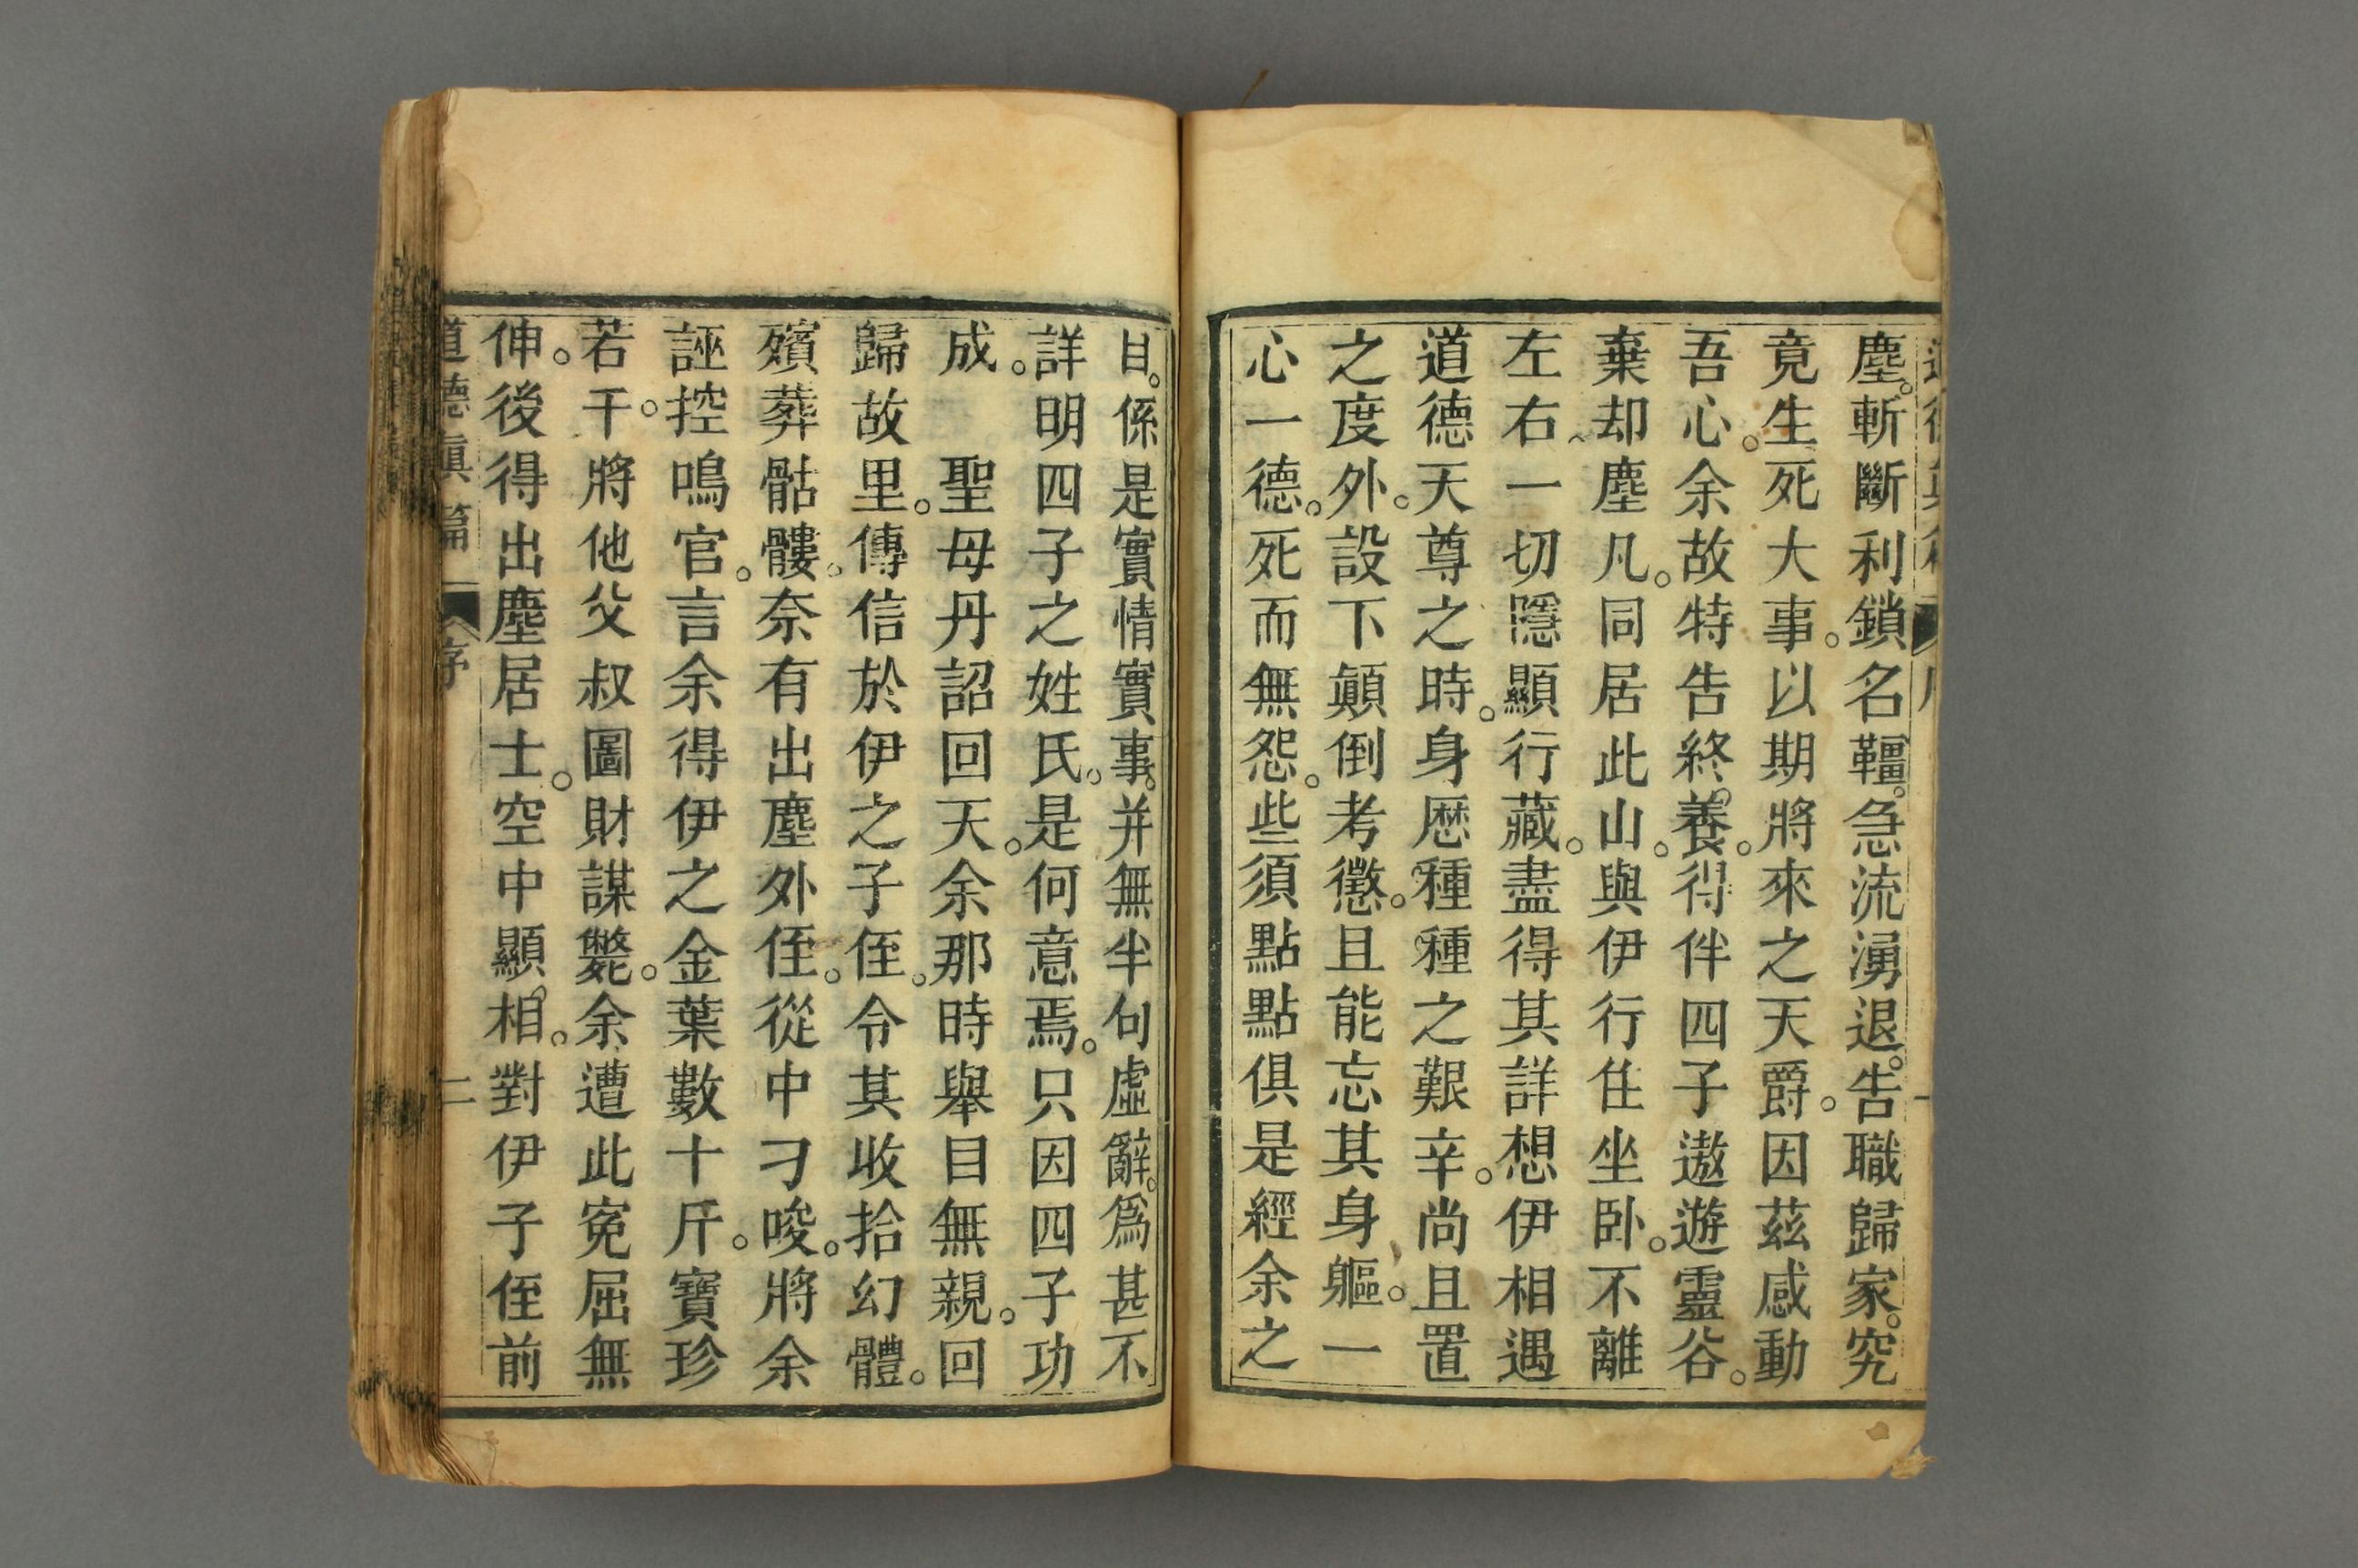 塵。斬斷利鎖名韁。急流湧退。告職歸家。究
竟生死大事。以期將來之天爵。因茲感動
吾心。余故特告終。養。得伴四子遨遊靈谷。
棄却塵凡。同居此山。與伊行住坐卧。不離
左右、一切隱顯行藏。盡得其詳想伊相遇
道德天尊之時。身歷種種之艱辛。尚且置
之度外。設下顛倒考懲。且能忘其身軀。一
心一德。死而無怨。些須點點俱是經余之
目。係是實情實事。并無半句虛辭。爲甚不
詳明四子之姓氏。是何意焉。只因四子功
成。　聖母丹詔回天。余那時舉目無親。回
歸故里。傳信於伊之子侄。令其收拾幻體。
殯葬骷髏。奈有出塵外侄。從中刁唆。將余
誣控鳴官。言余得伊之金葉數十斤。寶珍
若干。將他父叔圖財謀斃。余遭此寃屈無
伸。後得出塵居士。空中顯。相。對伊子侄前
道德眞篇　序　二